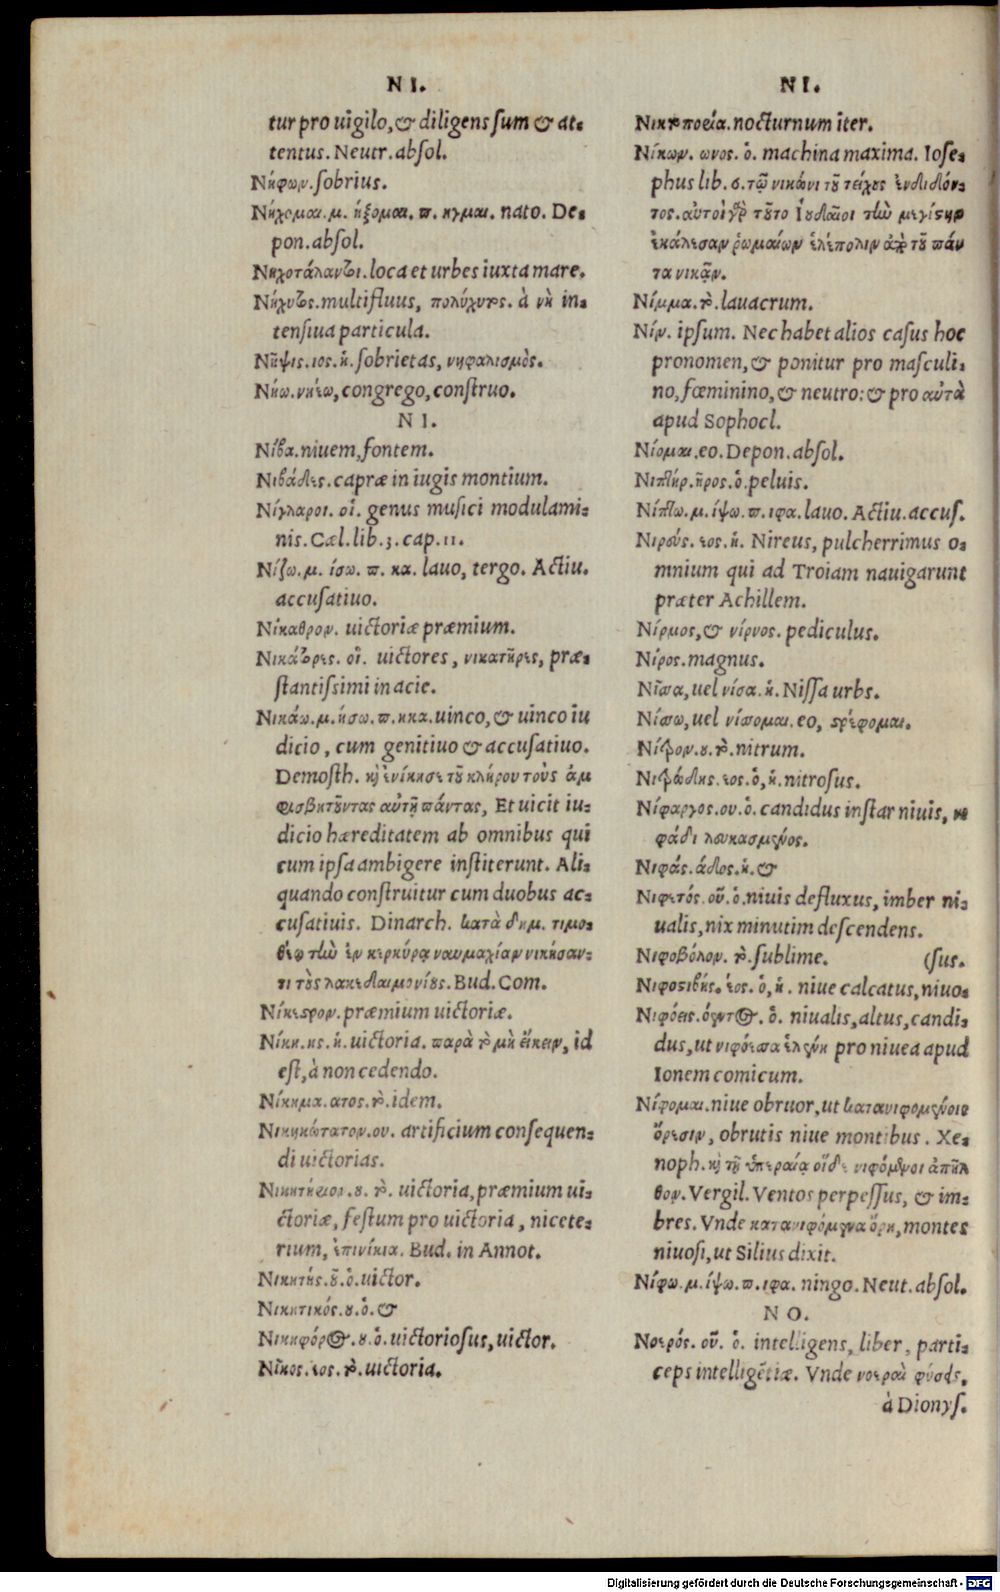 NI.
tur pro uigilo, & diligens sum & at-
tentus. Neutr. absol.
Νήφων. sobrius.
Νήχομαι. μ. ήξομαι. π. ηγμαι. nato. De-
pon. absol.
Νηχοτάλαντοι. loca et urbes iuxta mare.
Νήχυτος. multifluus, πολύχυτος. à νὴ in-
tensiua particula.
Νῆψις. ιος. ἡ. sobrietas, νηφαλισμὸς.
Νήω. νηέω, congrego, construo.
NI.
Νίβα. niuem, fontem.
Νιβάδες. capræ in iugis montium.
Νίγλαροι. οἱ. genus musici modulami-
nis. Cæl. lib. 3. cap. 11.
Νίζω. μ. ίσω. π. κα. lauo, tergo. Actiu.
accusatiuo.
Νίκαθρον. uictoriæ præmium.
Νικάτορες. οἱ. uictores, νικατῆρες, præ-
stantissimi in acie.
Νικάω. μ. ήσω. π. ηκα. uinco, & uinco iu
dicio, cum genitiuo & accusatiuo.
Demosth. καὶ ἐνίκησε τοῦ κλήρου τοὺς ἀμ
φισβητοῦντας αὐτῇ πάντας, Et uicit iu-
dicio hæreditatem ab omnibus qui
cum ipsa ambigere institerunt. Ali-
quando construitur cum duobus ac-
cusatiuis. Dinarch. κατὰ δημ. τιμο-
θέῳ τὴν ἐν κερκύρᾳ ναυμαχίαν νικήσαν-
τι τοὺς λακεδαιμονίους. Bud. Com.
Νίκεστρον. præmium uictoriæ.
Νίκη. ης. ἡ. uictoria. παρὰ τὸ μὴ εἴκειν, id
est, à non cedendo.
Νίκημα. ατος. τὸ. idem.
Νικηκώτατον. ου. artificium consequen-
di uictorias.
Νικητήριον. ου. τὸ. uictoria, præmium ui-
ctoriæ, festum pro uictoria, nicete-
rium, ἐπινίκια. Bud. in Annot.
Νικητής. οῦ. ὁ. uictor.
Νικητικός. ου. ὁ. &
Νικηφόρος. ου. ὁ. uictoriosus, uictor.
Νῖκος. εος. τὸ. uictoria.
NI.
Νικτοπορεία. nocturnum iter.
Νίκων. ωνος. ὁ. machina maxima. Iose-
phus lib. ς. τῷ νικῶνι τοῦ τείχους ἐνδιδόν-
τος. αὐτοὶ γὰρ τοῦτο Ἰουδαῖοι τὴν μεγίστην
ἐκάλεσαν ῥωμαίων ἑλέπολιν ἀπὸ τοῦ πάν
τα νικᾷν.
Νίμμα. τὸ. lauacrum.
Νίν. ipsum. Nec habet alios casus hoc
pronomen, & ponitur pro masculi-
no, fœminino, & neutro: & pro αὐτὰ
apud Sophocl.
Νίομαι. eo. Depon. absol.
Νιπτήρ. ῆρος. ὁ. peluis.
Νίπτω. μ. ίψω. π. ιφα. lauo. Actiu. accus.
Νιρεύς. εος. ἡ. Nireus, pulcherrimus o-
mnium qui ad Troiam nauigarunt
præter Achillem.
Νίρμος, & νίρνος. pediculus.
Νίρος. magnus.
Νῖσσα, uel νίσα. ἡ. Nissa urbs.
Νίσσω, uel νίσσομαι. eo, στρέφομαι.
Νίτρον. ου. τὸ. nitrum.
Νιτρώδης. εος. ὁ, ἡ. nitrosus.
Νίφαργος. ου. ὁ. candidus instar niuis, νι
φάδι λευκασμένος.
Νιφάς. άδος. ἡ. &
Νιφετός. οῦ. ὁ. niuis defluxus, imber ni-
ualis, nix minutim descendens.
Νιφοβόλον. τὸ. sublime. (sus.
Νιφοστιβής. έος. ὁ, ἡ. niue calcatus, niuo-
Νιφόεις. όεντος. ὁ. niualis, altus, candi-
dus, ut νιφόεσσα ἑλένη pro niuea apud
Ionem comicum.
Νίφομαι. niue obruor, ut κατανιφομένοις
ὄρεσιν, obrutis niue montibus. Xe-
noph. καὶ τῇ ὑπεραίᾳ οἵδε νιφόμενοι ἀπῆλ
θον. Vergil. Ventos perpessus, & im-
bres. Vnde κατανιφόμενα ὄρη, montes
niuosi, ut Silius dixit.
Νίφω. μ. ίψω. π. ιφα. ningo. Neut. absol.
NO.
Νοερός. οῦ. ὁ. intelligens, liber, parti-
ceps intelligẽtiæ. Vnde νοεραὶ φύσεις,
à Dionys.
Digitalisierung gefördert durch die Deutsche Forschungsgemeinschaft - DFG